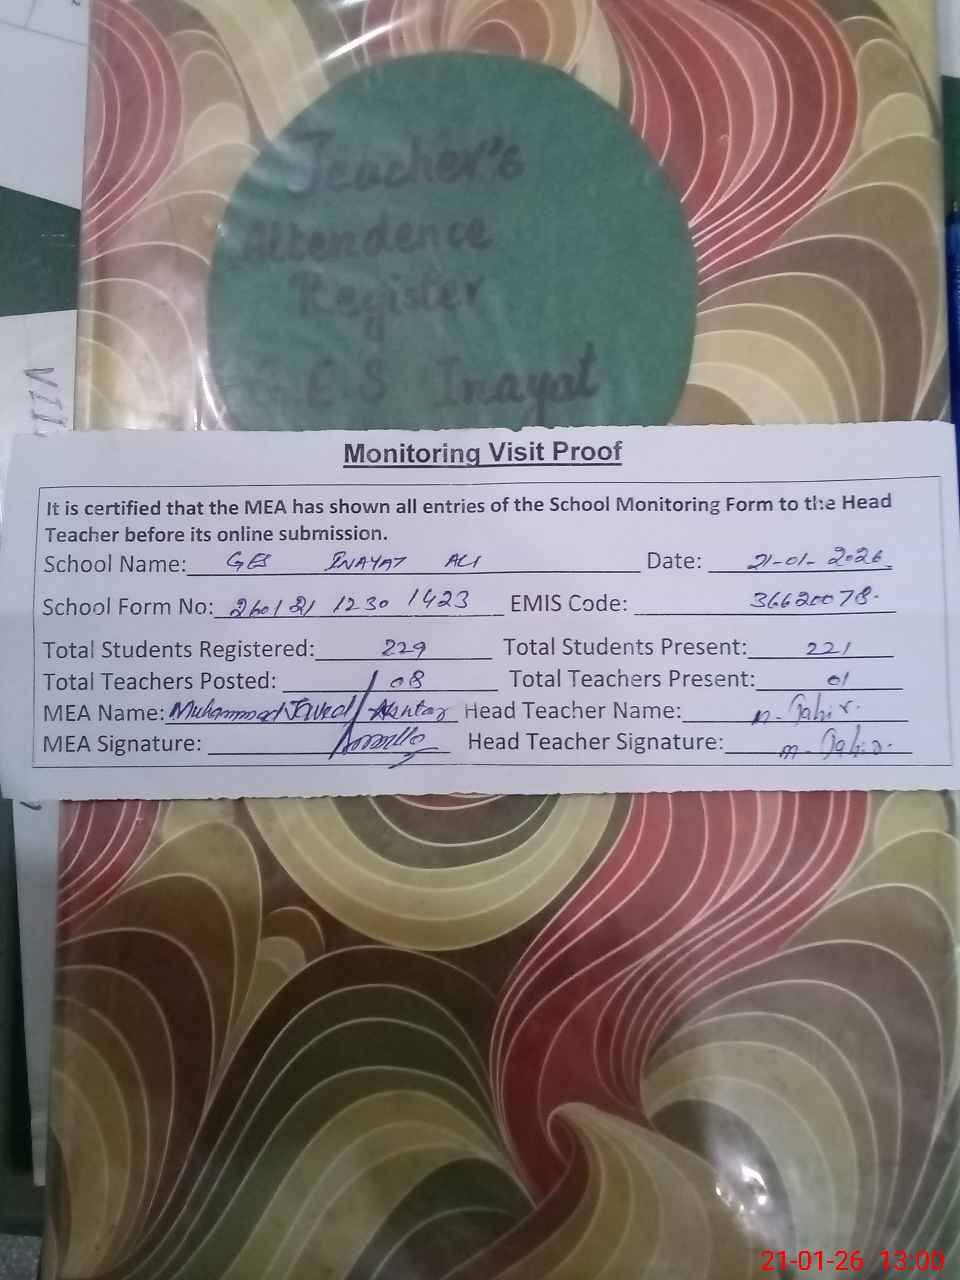 Teacher's
Attendence
Register
G.E.S Inayat
Monitoring Visit Proof
It is certified that the MEA has shown all entries of the School Monitoring Form to the Head
Teacher before its online submission.
School Name: GES INAYAT ALI Date: 21-01-2026
School Form No: 260121 1230 1423 EMIS Code: 36620078
Total Students Registered: 229 Total Students Present: 221
Total Teachers Posted: 08 Total Teachers Present: 01
MEA Name: Muhammad Javed Akhtar Head Teacher Name:
MEA Signature: Head Teacher Signature:
21-01-26 13:00